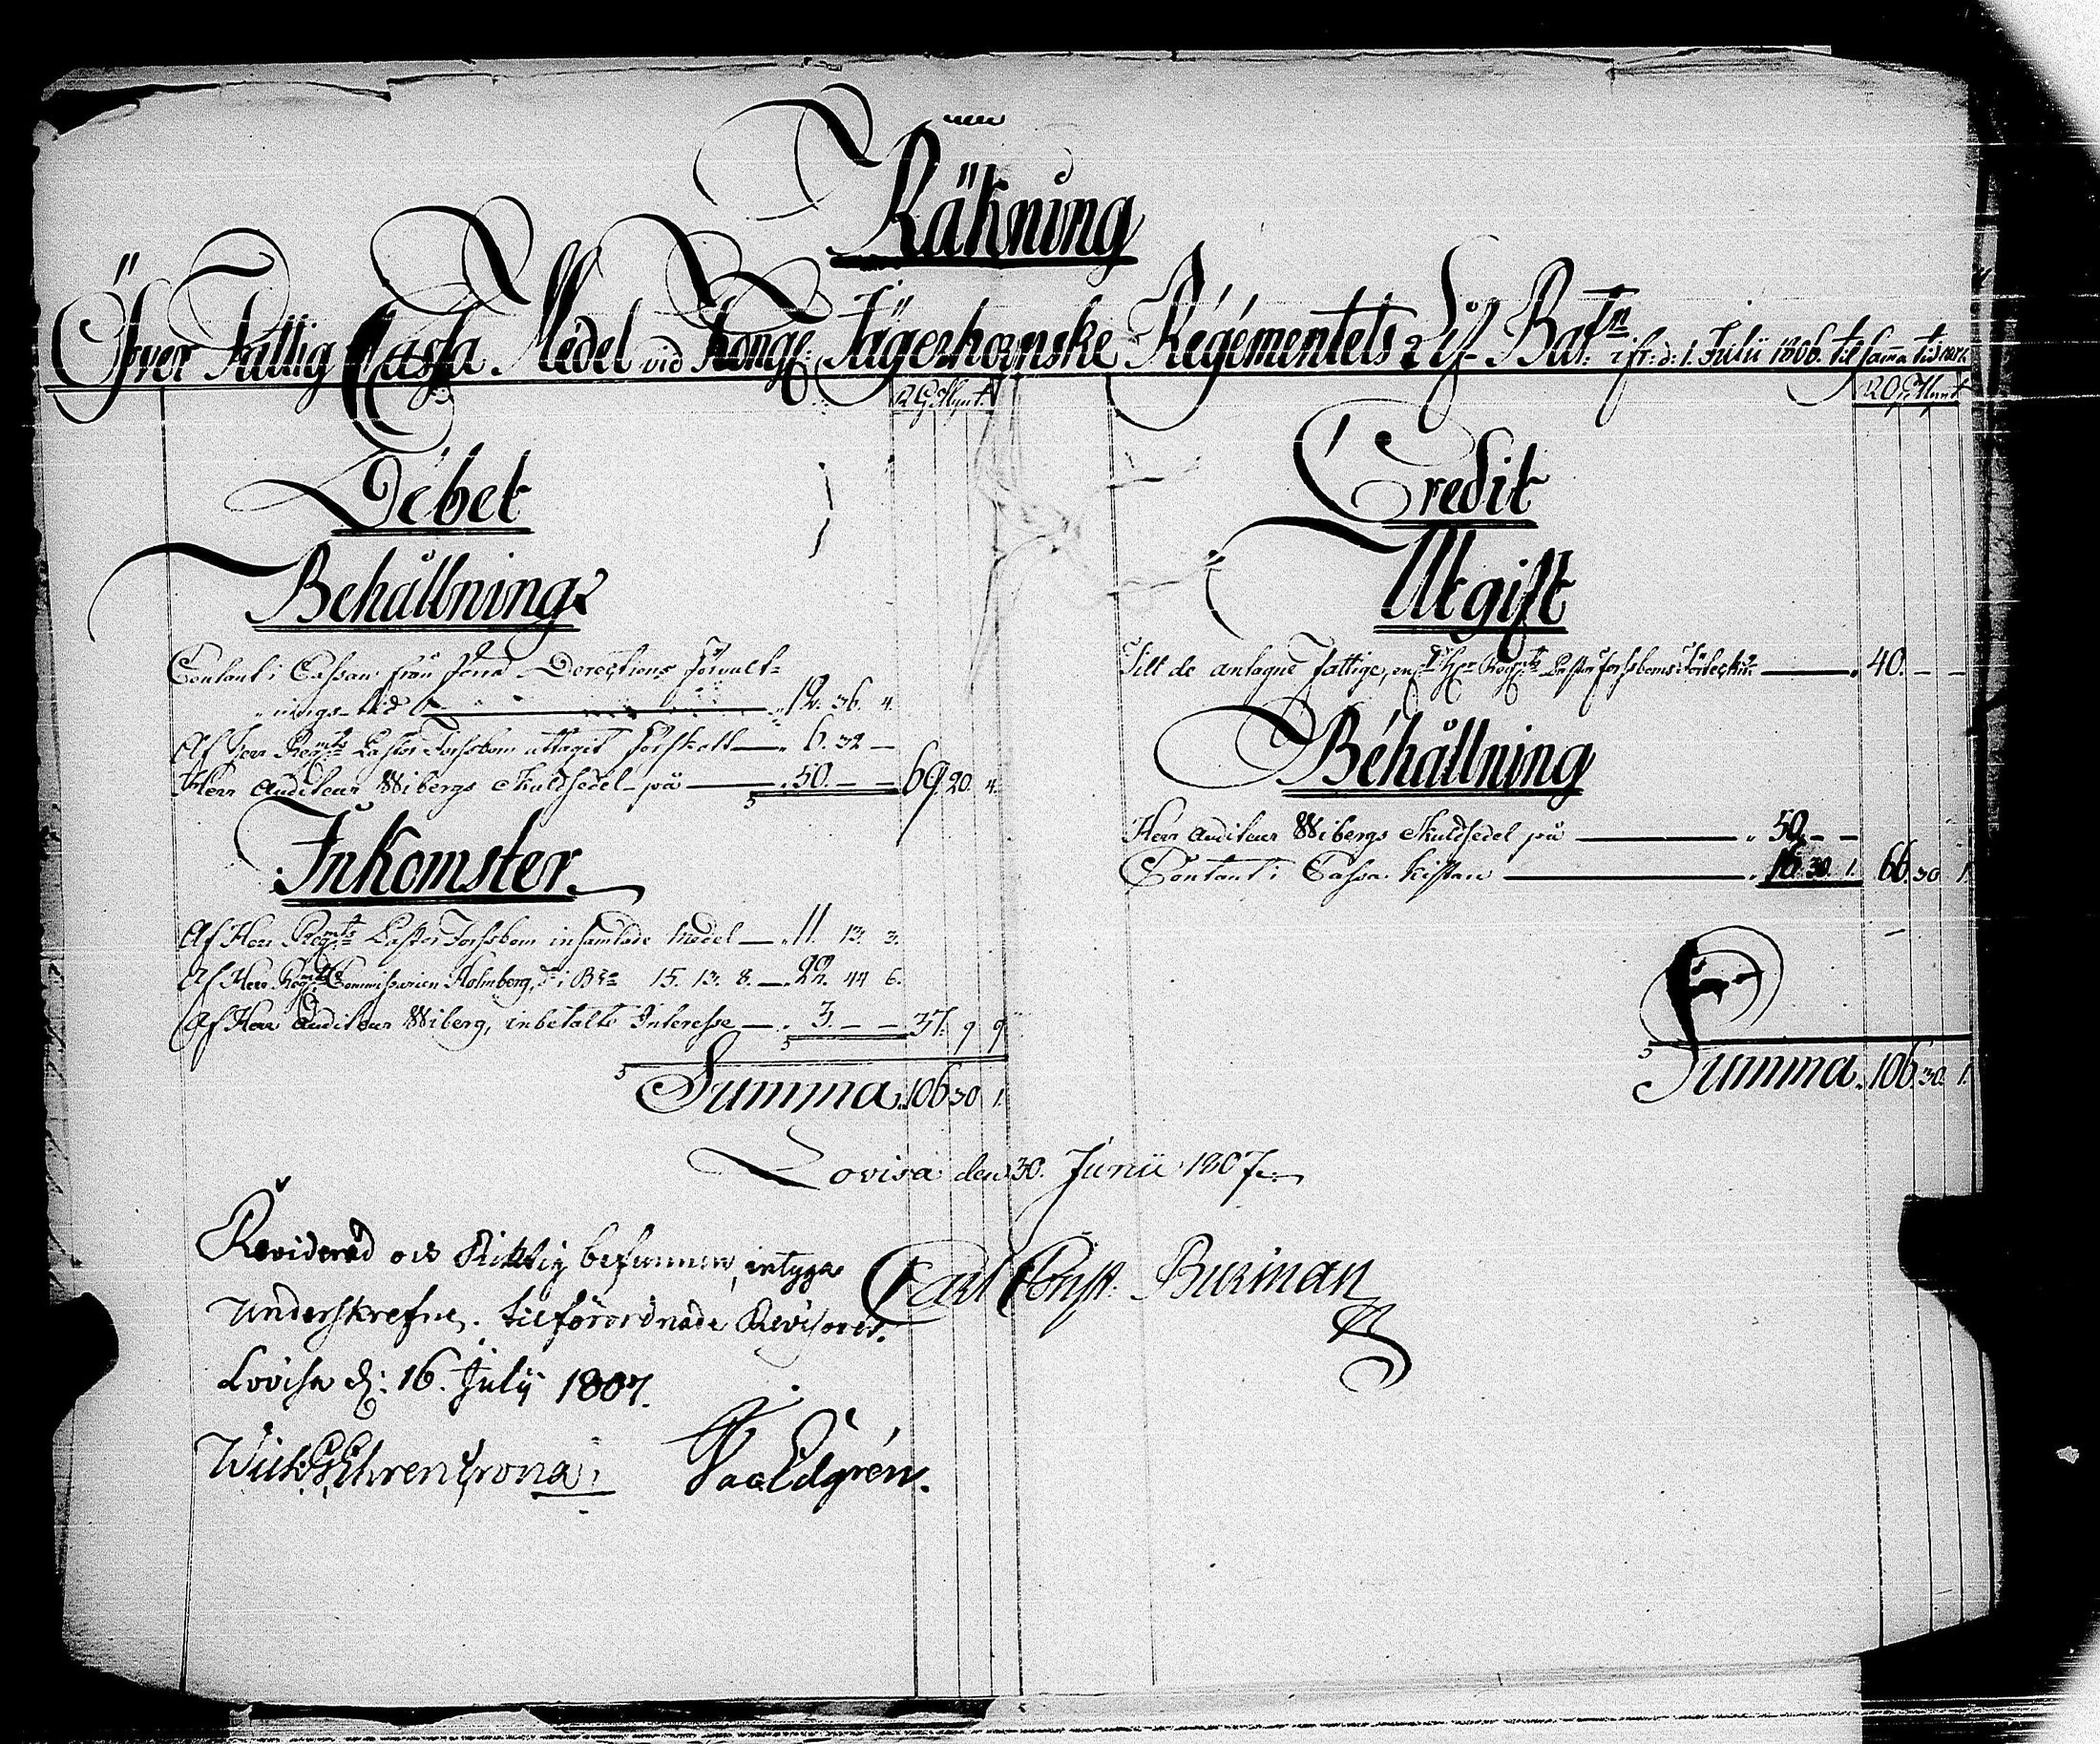 Räkning
Öfver Fattig Cassa Medel vid Kongl: Jägerhornske Regementets Lif Bat:n ifr: d: 1. Julii 1806. til samma tid 1807.
R G Mynt.
Debet
Behållning
Contant i Cassan från förra Directions Förvalt-
nings-tid 12. 36. 4.
Af Herr Reg:mts Pastor Forssbom uttagit Förskott 6. 32 –
Herr Auditeur Wibergs Skuldsedel på 50. – – 69. 20. 4.
Inkomster
Af Herr Reg:mts Pastor Forssbom insamlade Medel 11. 13. 3.
Af Herr Reg:mts Commissarien Holmberg, i B:co 15. 13. 8. 22. 44 6.
Af Herr Auditeur Wiberg, inbetalte Interesse 3. – – 37. 9 9
Summa 106 30 1.
R G Mynt
Credit
Utgift
Till de antagne Fattige, Herr Reg:mts Pastor Forssboms 40. – –
Behållning
Herr Auditeur Wibergs Skuldsedel på 50. – –
Contant i Cassa Kistan 16. 30. 1. 66. 30 1
Summa 106. 30. 1.
Lovisa den 30. Junii 1807.
Carl Const: Burman
Reviderad och Riktig befunnen, intyga
Underskrefne, tilförordnade Revisorer.
Lovisa d: 16. Julii 1807.
Ehrencrona
Edgrén.